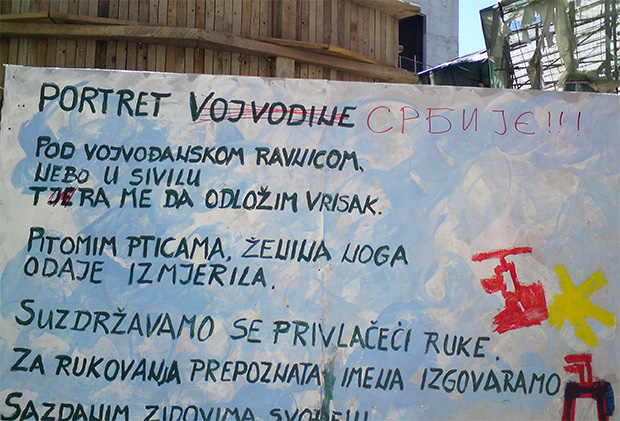 PORTRET VOJVODINE СРБИЈЕ!!!
POD VOJVOĐANSKOM RAVNICOM,
NEBO U SIVILU
TJERA ME DA ODLOŽIM VRISAK.
PITOMIM PTICAMA, ŽENINA NOGA
ODAJE IZMJERILA.
SUZDRŽAVAMO SE PRIVLAČEĆI RUKE.
ZA RUKOVANJA PREPOZNATA, IMENA IZGOVARAMO
SAZDANIM ZIDOVIMA